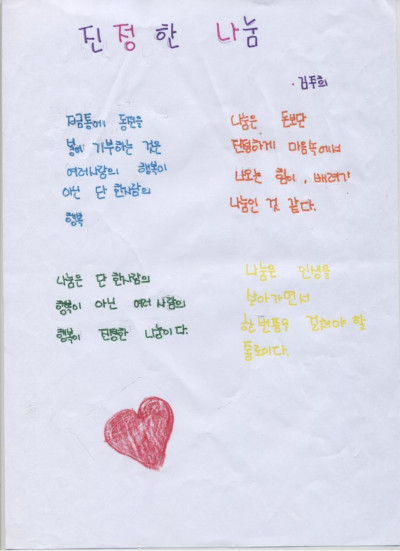 진정한 나눔
·김주희
저금통에 동전을
봉에 기부하는 것은
여러사람의 행복이
아닌 단 한사람의
행복
나눔은 단 한사람의
행복이 아닌 여러 사람의
행복이 진정한 나눔이다.
나눔은 돈보단
진정하게 마음속에서
나오는 힘이, 배려가
나눔인 것 같다.
나눔은 인생을
살아가면서
한번쯤은 걸쳐야 할
통로이다.